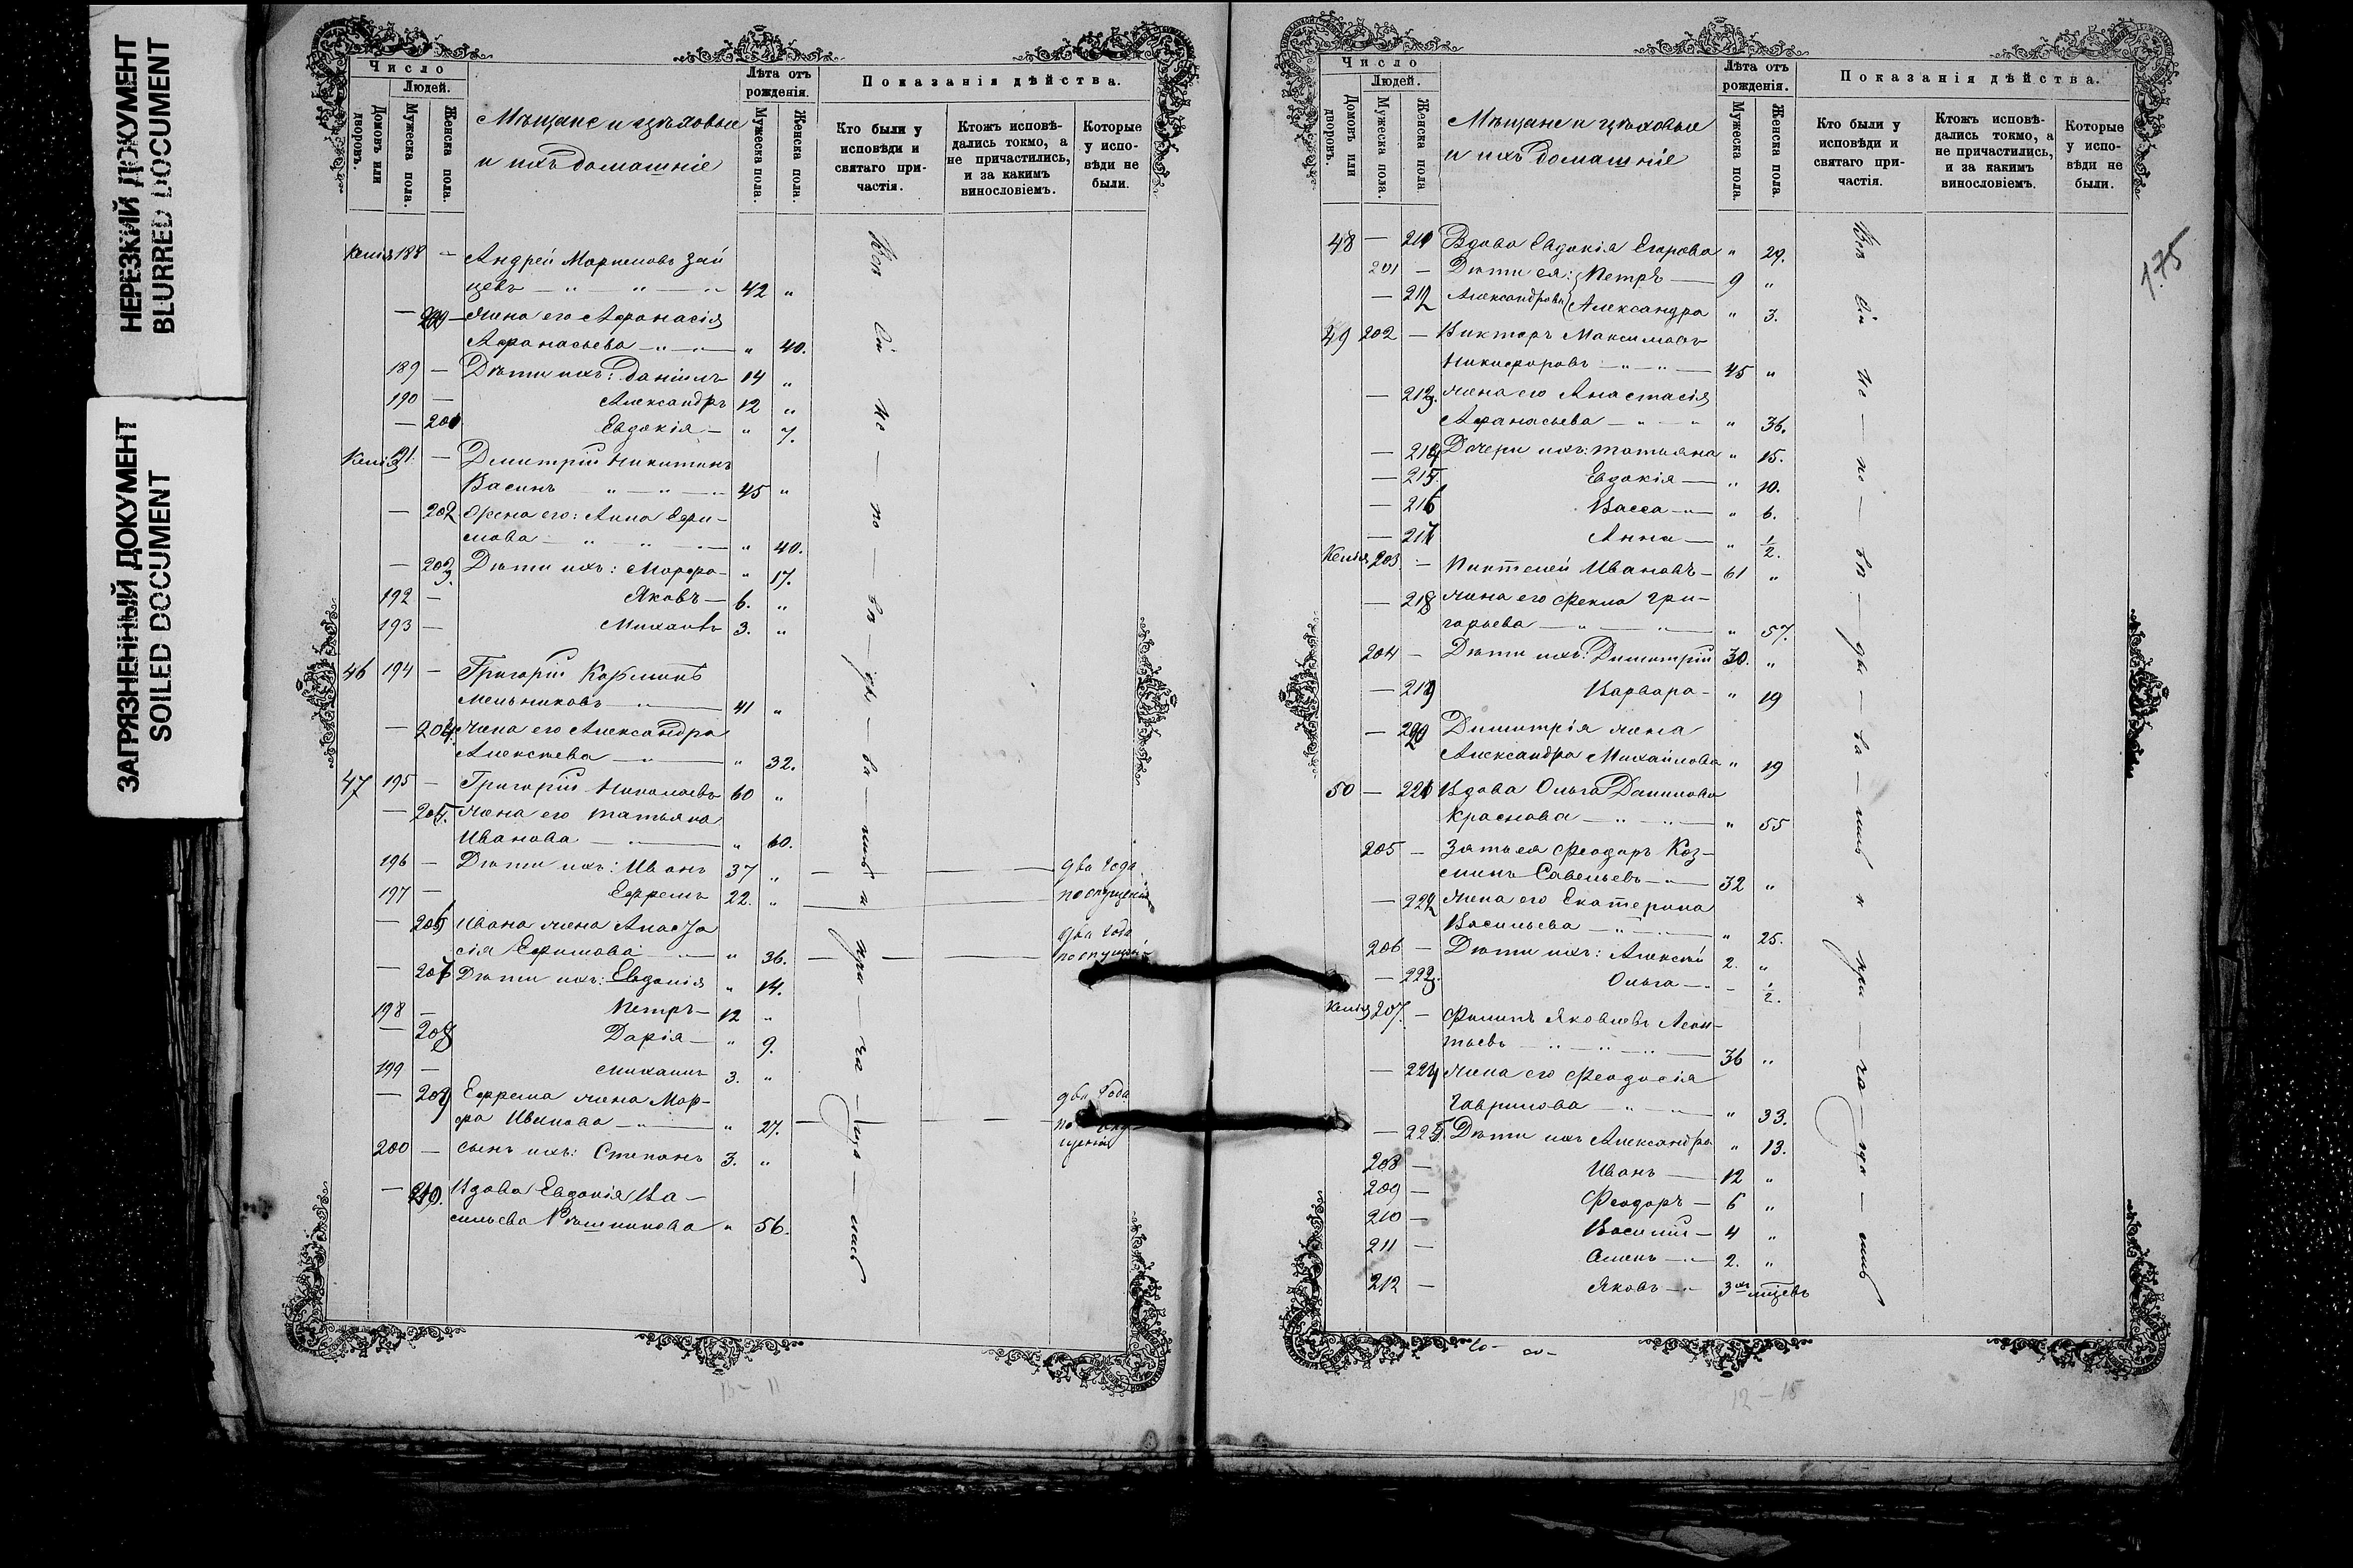 НЕРЕЗКИЙ ДОКУМЕНТ
BLURRED DOCUMENT
ЗАГРЯЗНЕННЫЙ ДОКУМЕНТ
SOILED DOCUMENT
Число
Людей.
Домовъ или дворовъ.
Мужеска пола.
Женска пола.
Мѣщане и цѣховые
и ихъ домашніе
Лѣта отъ рожденія.
Мужеска пола.
Женска пола.
Показанія дѣйства.
Кто были у исповѣди и святаго причастія.
Ктожъ исповѣдались токмо, а не причастились, и за какимъ винословіемъ.
Которые у исповѣди не были.
188 — Андрей
цевъ — " — " — " 42 "
— жена его Афанасія
Афанасьева — " — " 40.
189 — Дѣти ихъ: Даніилъ 14 "
190 — Александръ 12 "
— 201 Евдокія — " 7.
— Димитрій Никитинъ
Васинъ — " — " — 45 "
— 202 жена его: Анна Ефи-
мова — " — " — " 40.
— 203. Дѣти ихъ: Марфа — " 17.
192 — Яковъ — 6. "
193 — Михаилъ 3. "
46 194 — Григорій
Мельниковъ — " — 41 "
— 204 жена его Александра
Алексѣева — " — " 32.
47 195 — Григорій Николаевъ 60 "
— 205. жена его Татьяна
Иванова — " — " 60.
196 — Дѣти ихъ: Иванъ 37 " — — два года
197 — Ефремъ 22. " — по опущенію
— 206 Ивана жена Анаста
сія Ефимова — " 36. — — два года
по опущенію
— 207 Дѣти ихъ: Евдокія " 14.
198 — Петръ — 12 "
— 208 Дарія — " 9.
199 — Михаилъ 3. "
— 209 Ефрема жена Мар- два года
фа Иванова — " — " 27. — —
щенію
200 — сынъ ихъ: Степанъ 3. "
— 210. Вдова Евдокія Ва-
сильева " 56.
Всѣ сіи ис — по — вѣ — ды — ва — лись и при — ча — ща — лись
Число
Людей.
Домовъ или дворовъ.
Мужеска пола.
Женска пола.
Мѣщане и цѣховые
и ихъ домашніе
Лѣта отъ рожденія.
Мужеска пола.
Женска пола.
Показанія дѣйства.
Кто были у исповѣди и святаго причастія.
Ктожъ исповѣдались токмо, а не причастились, и за какимъ винословіемъ.
Которые у исповѣди не были.
175
48 — 211 Вдова Евдокія Егорова " 29.
201 — Дѣти ея: Петръ — 9 "
— 212 Александровы Александра " 3.
49 202 — Викторъ Максимовъ
Никифоровъ — " — " — 45 "
— 213. жена его Анастасія
Афанасьева — " — " " 36.
— 214 Дочери ихъ: Татьяна " 15.
— 215. Евдокія — " 10.
— 216 Васса — " — " 6.
— 217 Анна — " 1/2.
203 — Пантелей Ивановъ — 61 "
— 218 жена его Фекла Гри-
горьева — " — " — " 57.
204 — Дѣти ихъ: Димитрій 30. "
— 219 Варвара — " 19
— 220 Димитрія жена
Александра Михайлова " 19
50 — 221 Вдова Ольга Данилова
Краснова — " — " — " 55
205 — Зять ея Феодоръ Коз-
минъ Савельевъ — " — 32 "
— 222 жена его Екатерина
Васильева — " — " 25.
206 — Дѣти ихъ: Алексѣй 2. "
— 223. Ольга — " — 1/2.
207. — Филипъ Яковлевъ Леон-
тьевъ — " — " — " — 36 "
— 224 жена его Феодосія
Гаврилова — " — " 33.
— 225 Дѣти ихъ Александра " 13.
208 — Иванъ — 12 "
209 — Феодоръ — 6 "
210 — Василій — 4 "
211 — 2. "
212 — Яковъ — " 3хъ мѣсцевъ
Всѣ сіи ис — по — вѣ — ды — ва — лись и при — ча — ща — лись
12 — 15